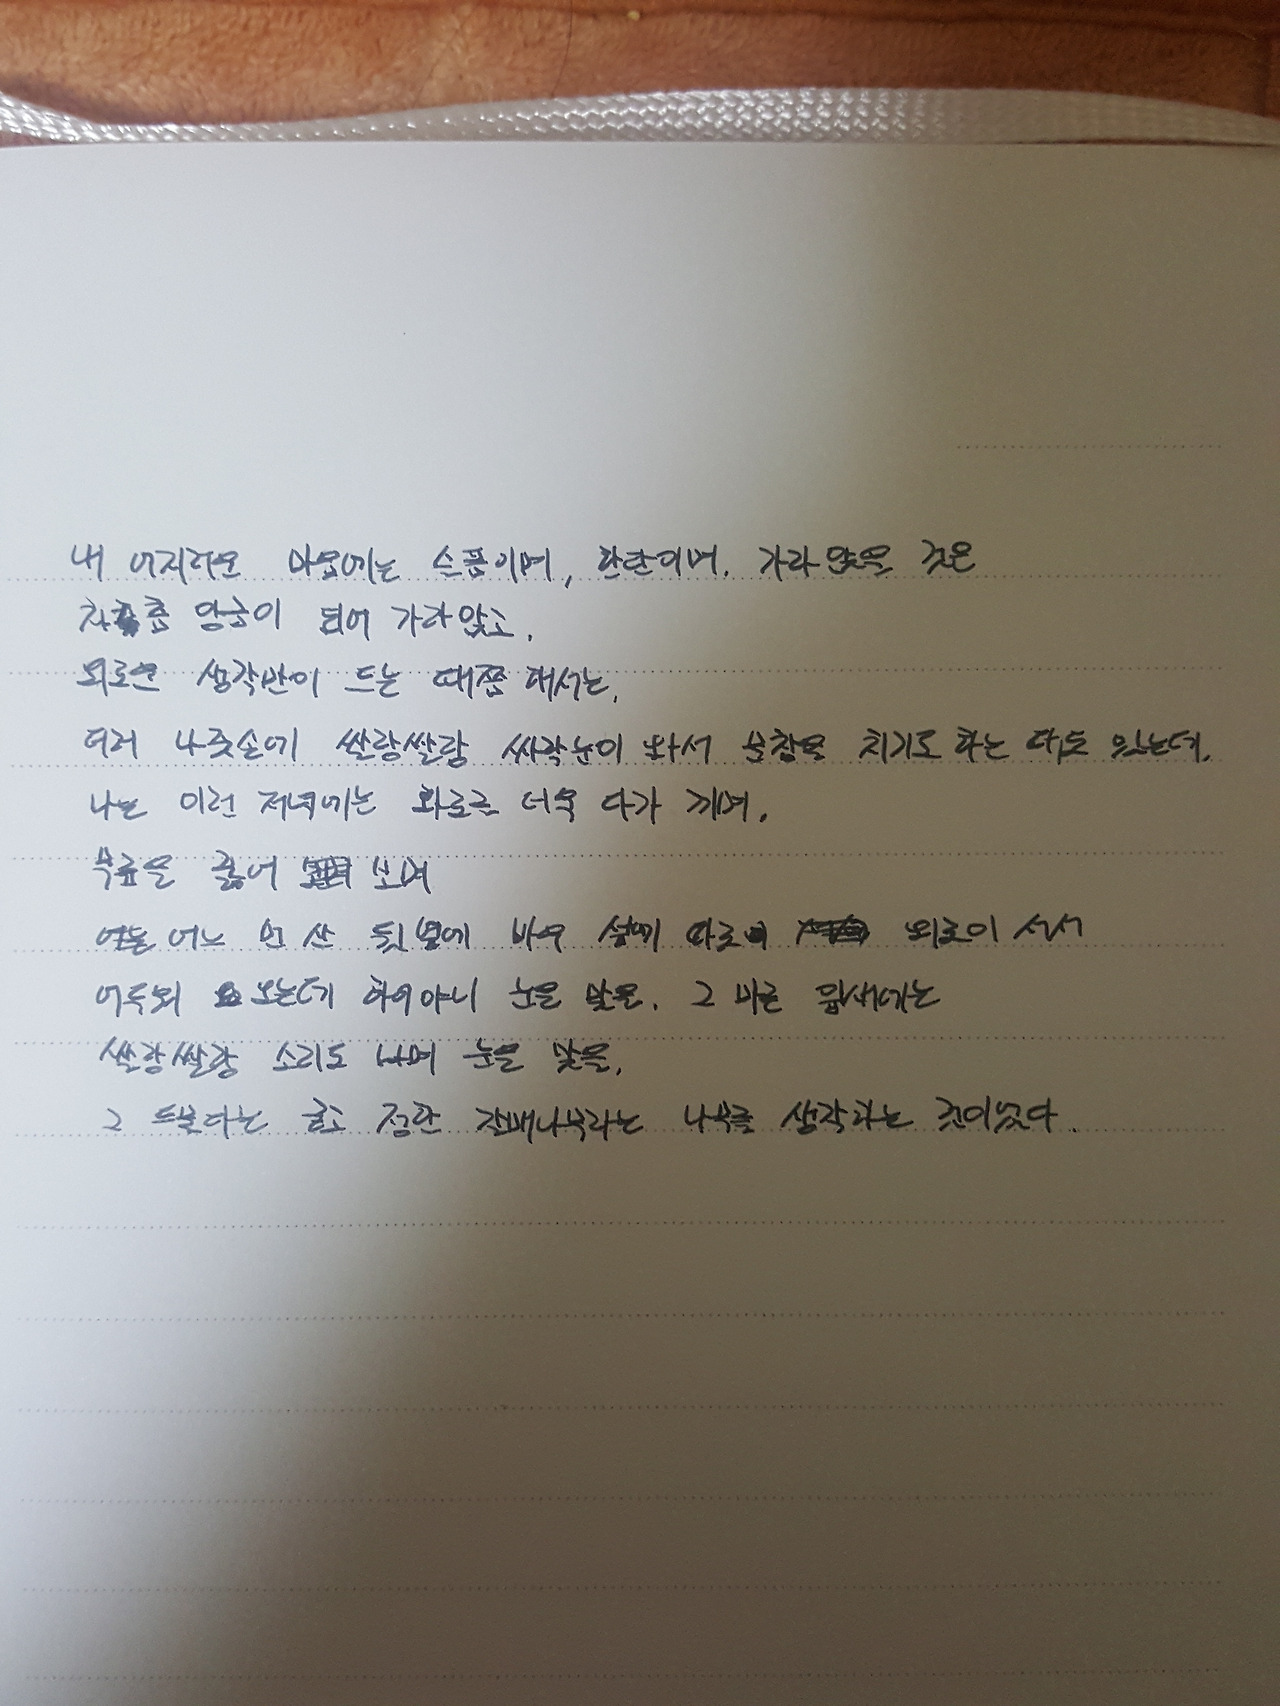 내 어지러운 마음에는 슬픔이며, 한탄이며, 가라앉을 것은
차츰 앙금이 되어 가라앉고,
외로운 생각만이 드는 때쯤 해서는,
더러 나줏손에 쌀랑쌀랑 싸락눈이 와서 문창을 치기도 하는 때도 있는데,
나는 이런 저녁에는 화로를 더욱 다가 끼며,
무릎을 꿇어 보며
어느 먼 산 뒷옆에 바우 섶에 따로 외로이 서서
어두워 오는데 하이야니 눈을 맞을, 그 마른 잎새에는
쌀랑쌀랑 소리도 나며 눈을 맞을,
그 드물다는 굳고 정한 갈매나무라는 나무를 생각하는 것이었다.